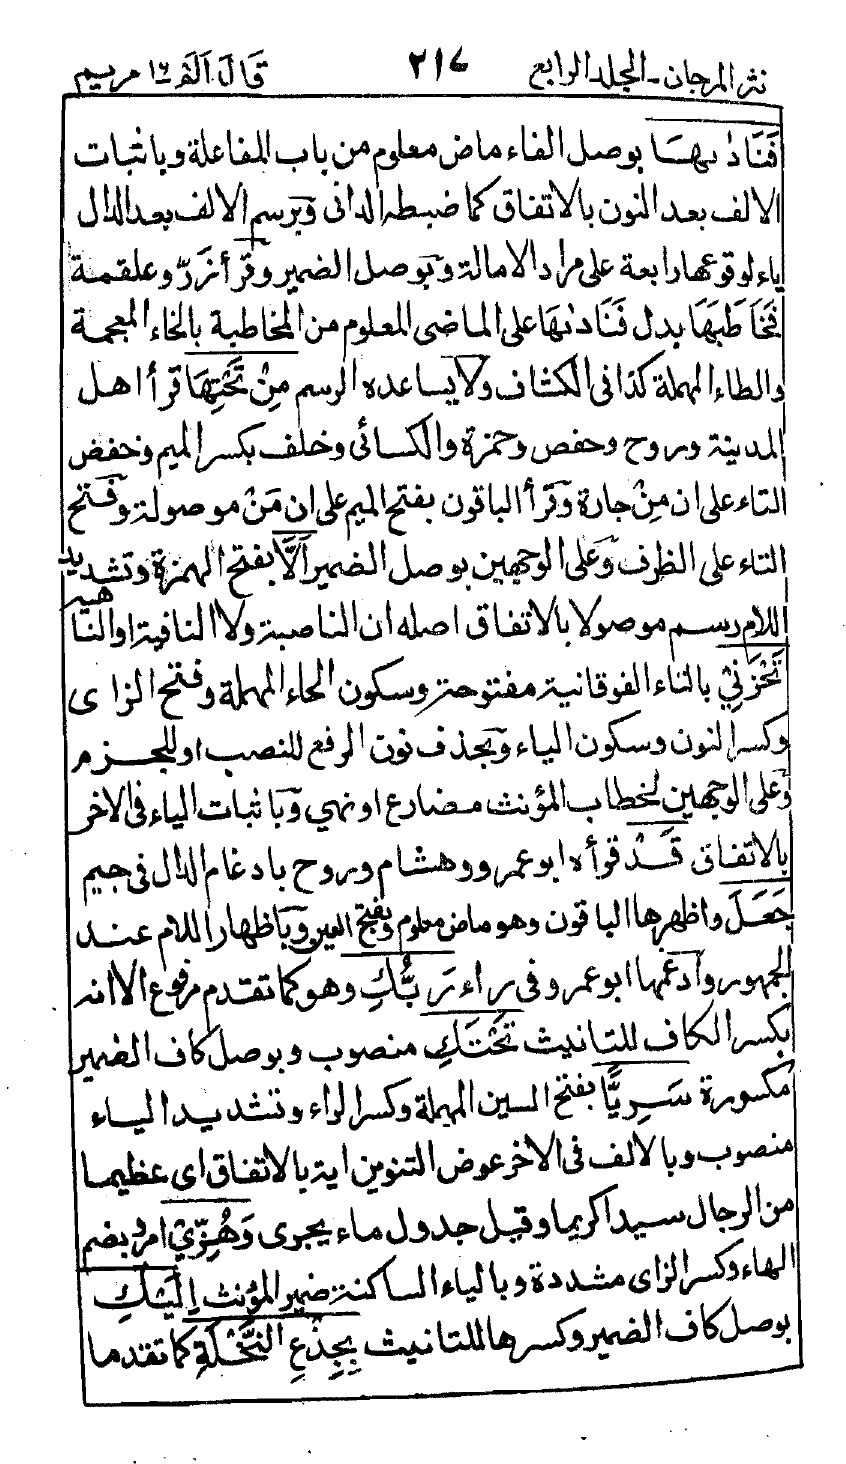 نثر المرجان - المجلد الرابع ٢١٧ قَالَ اَلَمْ ١٦ مريم
فَنَادٰىهَا بوصل الفاء ماض معلوم من باب المفاعلة وباثبات
الالف بعد النون بالاتفاق كما ضبطه الدانى وبرسم الالف بعد الدال
ياء لوقوعها رابعة على مراد الامالة وبوصل الضمير وقرأ زرّ وعلقمة
فَخَاطَبَهَا بدل فَنَادٰىهَا على الماضى المعلوم من المخاطبة بالخاء المعجمة
والطاء المهملة كذا فى الكشاف ولا يساعده الرسم مِنْ تَحْتِهَا قرأ اهل
المدينة وروح وحفص وحمزة والكسائى وخلف بكسر الميم وخفض
التاء على ان مِنْ جارة وقرأ الباقون بفتح الميم على ان مَنْ موصولة وفتح
التاء على الظرف وعلى الوجهين بوصل الضمير اَلَّا بفتح الهمزة وتشديد
اللام رسم موصولا بالاتفاق اصله ان الناصبة ولا النافية او الناهية
تَحْزَنِيْ بالتاء الفوقانية مفتوحة وسكون الحاء المهملة وفتح الزاى
وكسر النون وسكون الياء وبحذف نون الرفع للنصب او للجزم
وعلى الوجهين لخطاب المؤنث مضارع او نهي وباثبات الياء فى الاخر
بالاتفاق قَدْ قرأه ابو عمرو وهشام وروح بادغام الدال فى جيم
جَعَلَ واظهرها الباقون وهو ماض معلوم وبفتح العين وباظهار اللام عند
الجمهور وادغمها ابو عمرو فى راء رَبُّكِ وهو كما تقدم مرفوع الا انه
بكسر الكاف للتانيث تَحْتَكِ منصوب وبوصل كاف الضمير
مكسورة سَرِيًّا بفتح السين المهملة وكسر الراء وتشديد الياء
منصوب وبالالف فى الاخر عوض التنوين اية بالاتفاق اى عظيما
من الرجال سيدا كريما وقيل جدول ماء يجرى وَهُزِّيْ امر بضم
الهاء وكسر الزاى مشددة وبالياء الساكنة ضمير المؤنث اِلَيْكِ
بوصل كاف الضمير وكسرها للتانيث بِجِذْعِ النَّخْلَةِ كما تقدما